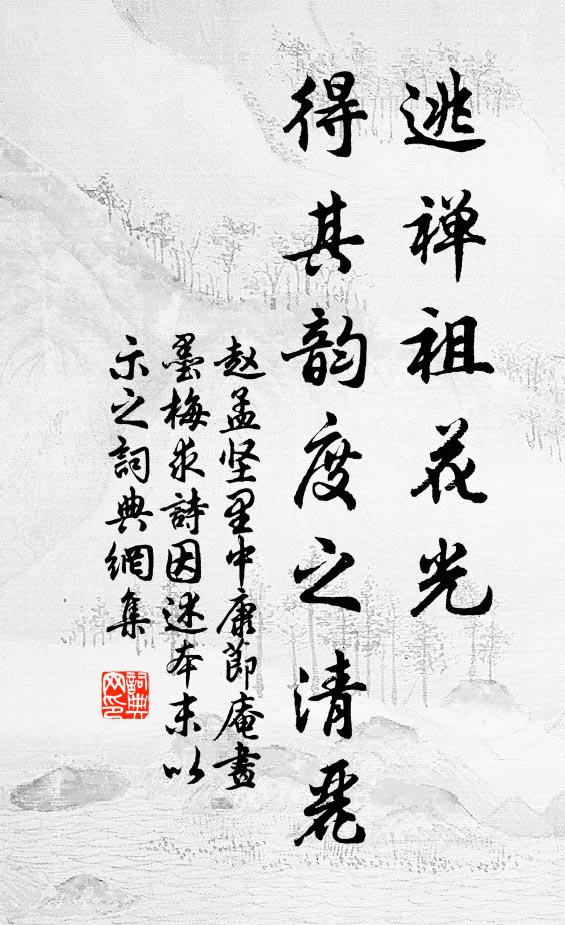 逃禅祖花光
得其韵度之清麗
赵孟坚里中康節庵畫
墨梅求詩因述本末以
示之詞典網集
詞典網印